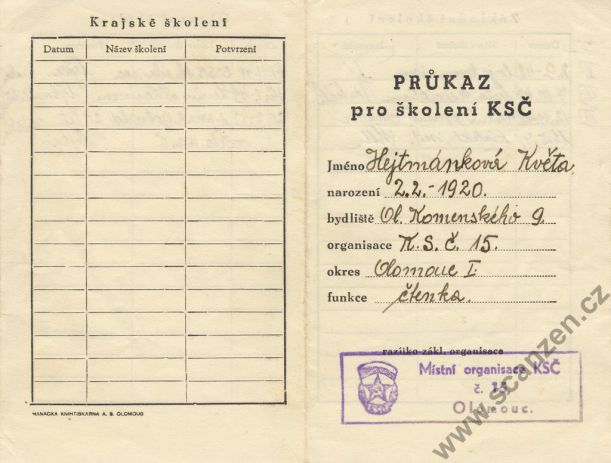 Krajské školení
Datum Název školení Potvrzení
HANÁCKÁ KNIHTISKÁRNA A. S. OLOMOUC
PRŮKAZ
pro školení KSČ
Jméno Hejtmánková Květa
narození 2.2.-1920.
bydliště Ol. Komenského 9.
organisace K.S.Č. 15.
okres Olomouc I.
funkce čtenka.
razítko zákl. organisace
Místní organisace KSČ
č. 15
Olomouc.
www.scanzen.cz